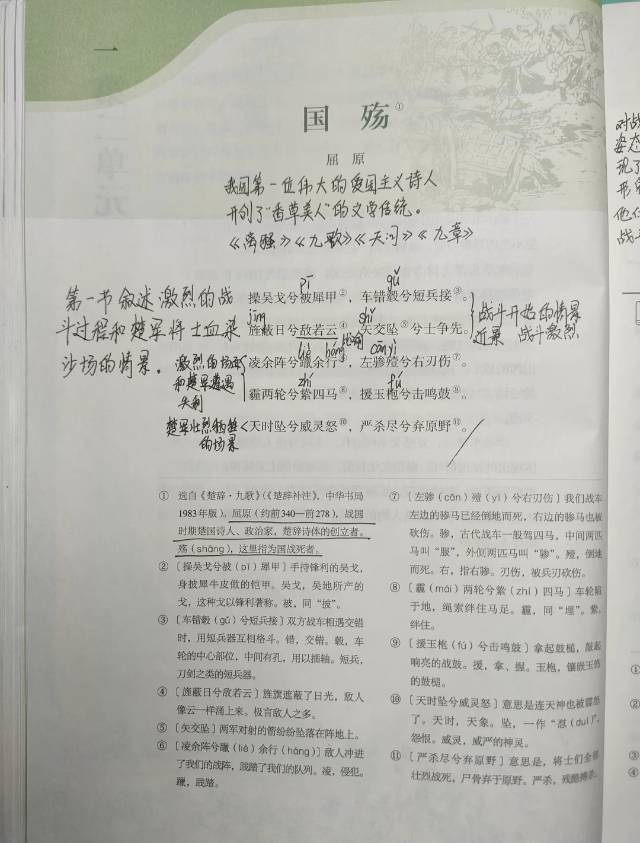 一
单元
国 殇①
屈 原
我国第一位伟大的爱国主义诗人
开创了"香草美人"的文学传统。
《离骚》《九歌》《天问》《九章》
第一节叙述激烈的战
斗过程和楚军将士血染
沙场的情景。
pī gǔ
操吴戈兮被犀甲②,车错毂兮短兵接③。
jīng shǐ
旌蔽日兮敌若云④,矢交坠⑤兮士争先。
战斗开始的情景
近景 战斗激烈
liè háng cān yì
凌余阵兮躐余行⑥,左骖殪兮右刃伤⑦。
zhí fú
霾两轮兮絷四马⑧,援玉枹兮击鸣鼓⑨。
激烈的场面
和楚军遭遇
失利
天时坠兮威灵怒⑩,严杀尽兮弃原野⑪。
楚军壮烈牺牲
的场景
① 选自《楚辞·九歌》(《楚辞补注》,中华书局
1983年版)。屈原(约前340—前278),战国
时期楚国诗人、政治家,楚辞诗体的创立者。
殇(shāng),这里指为国战死者。
② 〔操吴戈兮被(pī)犀甲〕手持锋利的吴戈,
身披犀牛皮做的铠甲。吴戈,吴地所产的
戈,这种戈以锋利著称。被,同"披"。
③ 〔车错毂(gǔ)兮短兵接〕双方战车相遇交错
时,用短兵器互相格斗。错,交错。毂,车
轮的中心部位,中间有孔,用以插轴。短兵,
刀剑之类的短兵器。
④ 〔旌蔽日兮敌若云〕旌旗遮蔽了日光,敌人
像云一样涌上来。极言敌人之多。
⑤ 〔矢交坠〕两军对射的箭纷纷坠落在阵地上。
⑥ 〔凌余阵兮躐(liè)余行(háng)〕敌人冲进
了我们的战阵,践踏了我们的队列。凌,侵犯。
躐,践踏。
⑦ 〔左骖(cān)殪(yì)兮右刃伤〕我们战车
左边的骖马已经倒地而死,右边的骖马也被
砍伤。骖,古代战车一般驾四马,中间两匹
马叫"服",外侧两匹马叫"骖"。殪,倒地
而死。右,指右骖。刃伤,被兵刃砍伤。
⑧ 〔霾(mái)两轮兮絷(zhí)四马〕车轮陷
于地,绳索绊住马足。霾,同"埋"。絷,
绊住。
⑨ 〔援玉枹(fú)兮击鸣鼓〕拿起鼓槌,敲起
响亮的战鼓。援,拿、握。玉枹,镶嵌玉的
的鼓槌。
⑩ 〔天时坠兮威灵怒〕意思是连天神也被震怒
了。天时,天象。坠,一作"怼(duì)",
怨恨。威灵,威严的神灵。
⑪ 〔严杀尽兮弃原野〕意思是,将士们全都
壮烈战死,尸骨弃于原野。严杀,残酷搏杀。
对战
姿态
现了
形象
他们
战斗
①
②
③
④